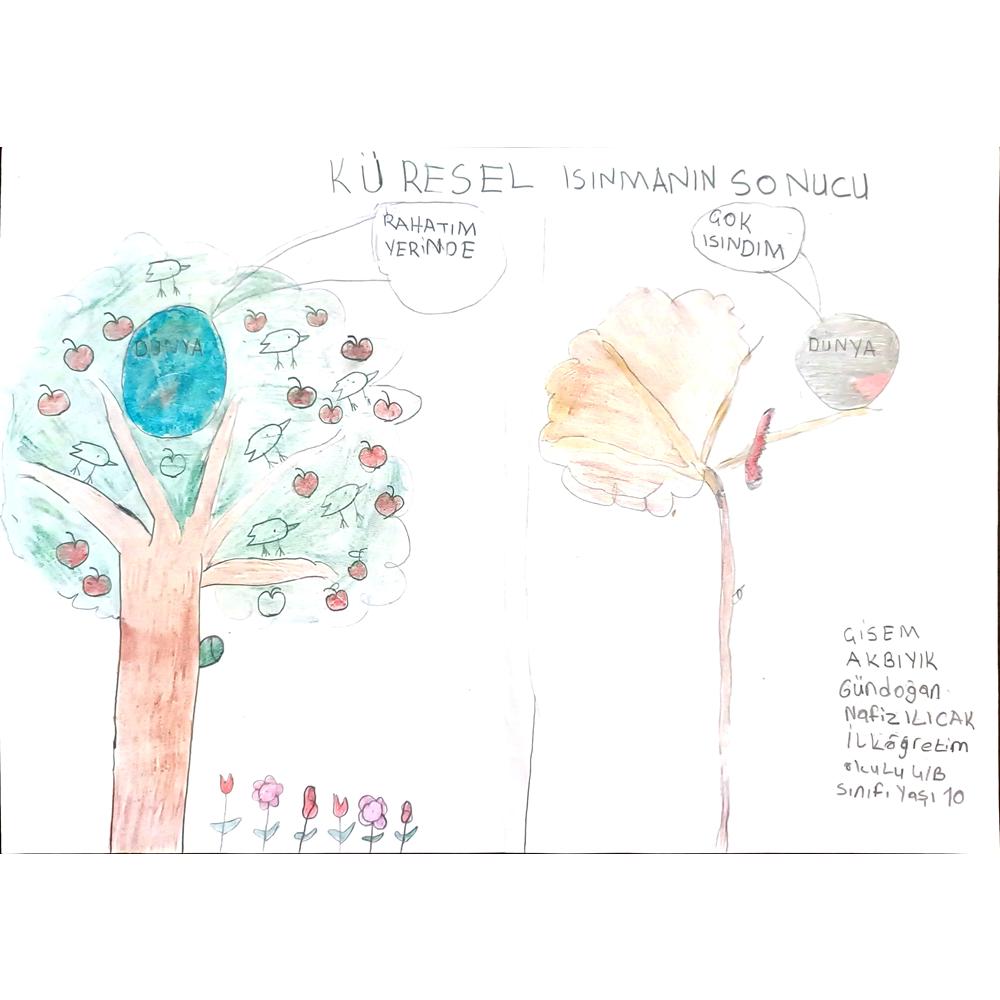 KÜRESEL ISINMANIN SONUCU
RAHATIM
YERİNDE
DÜNYA
ÇOK
ISINDIM
DÜNYA
GİSEM
AKBIYIK
Gündoğan
Nafiz ILICAK
İLköğretim
okulu 4/B
Sınıfı Yaşı 10